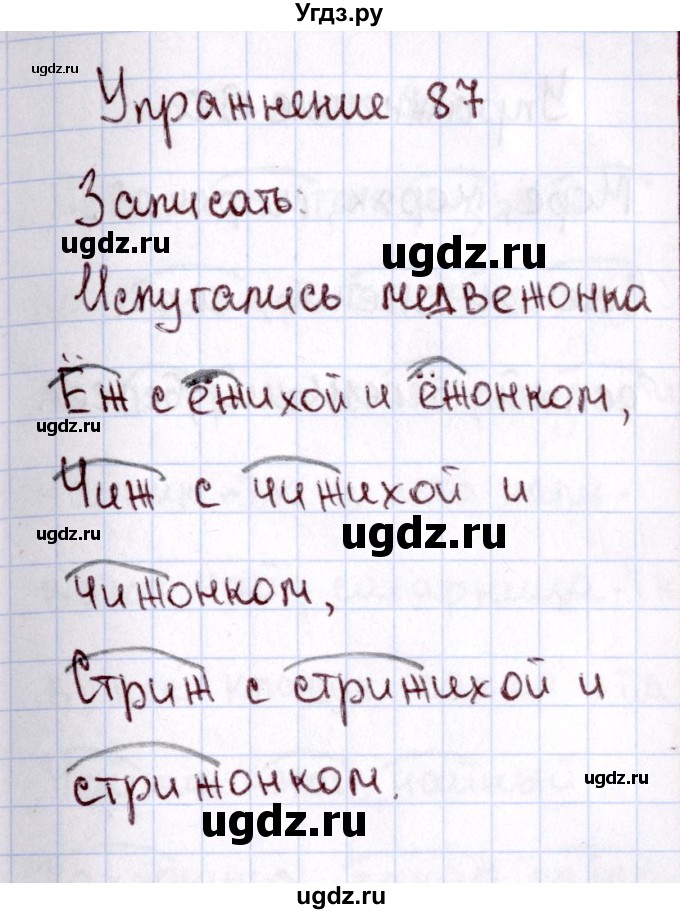 Угдз.ру
ugdz.ru
Упражнение 87
Записать:
ugdz.ru
ugdz.ru
Испугались медвежонка
Ёж с ёжихой и ёжонком,
ugdz.ru
Чиж с чижихой и
ugdz.ru
ugdz.ru
чижонком,
Стриж с стрижихой и
стрижонком.
ugdz.ru
ugdz.ru
ugdz.ru